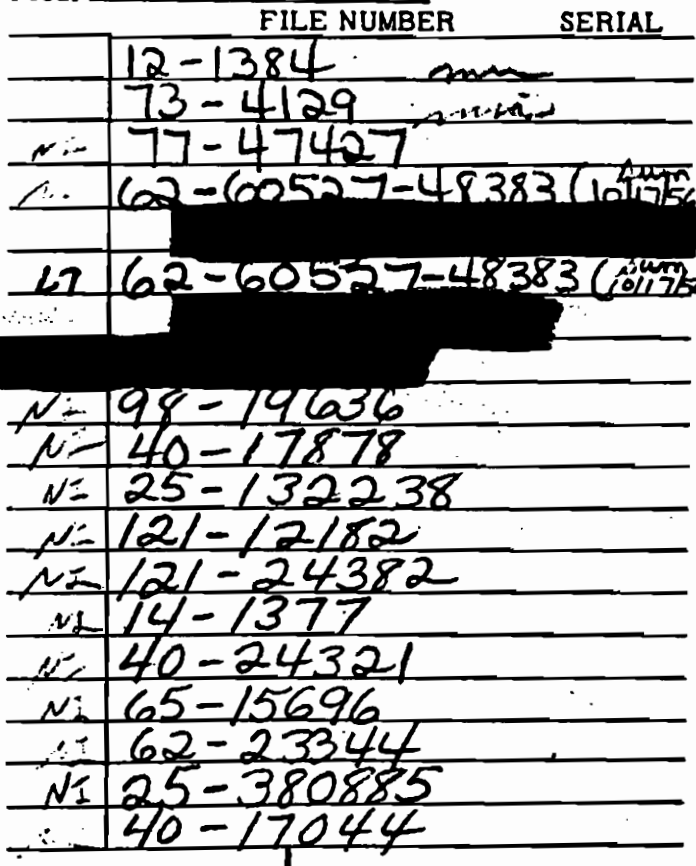 FILE NUMBER SERIAL
12-1384
73-4129
77-47427
62-60527-48383 (Sum 10/17/56
LT 62-60527-48383 (Sum 10/17/5
NI 98-19636
NI 40-17878
NI 25-132238
NI 121-12182
NI 121-24382
NI 14-1377
40-24321
NI 65-15696
62-23344
NI 25-380885
40-17044